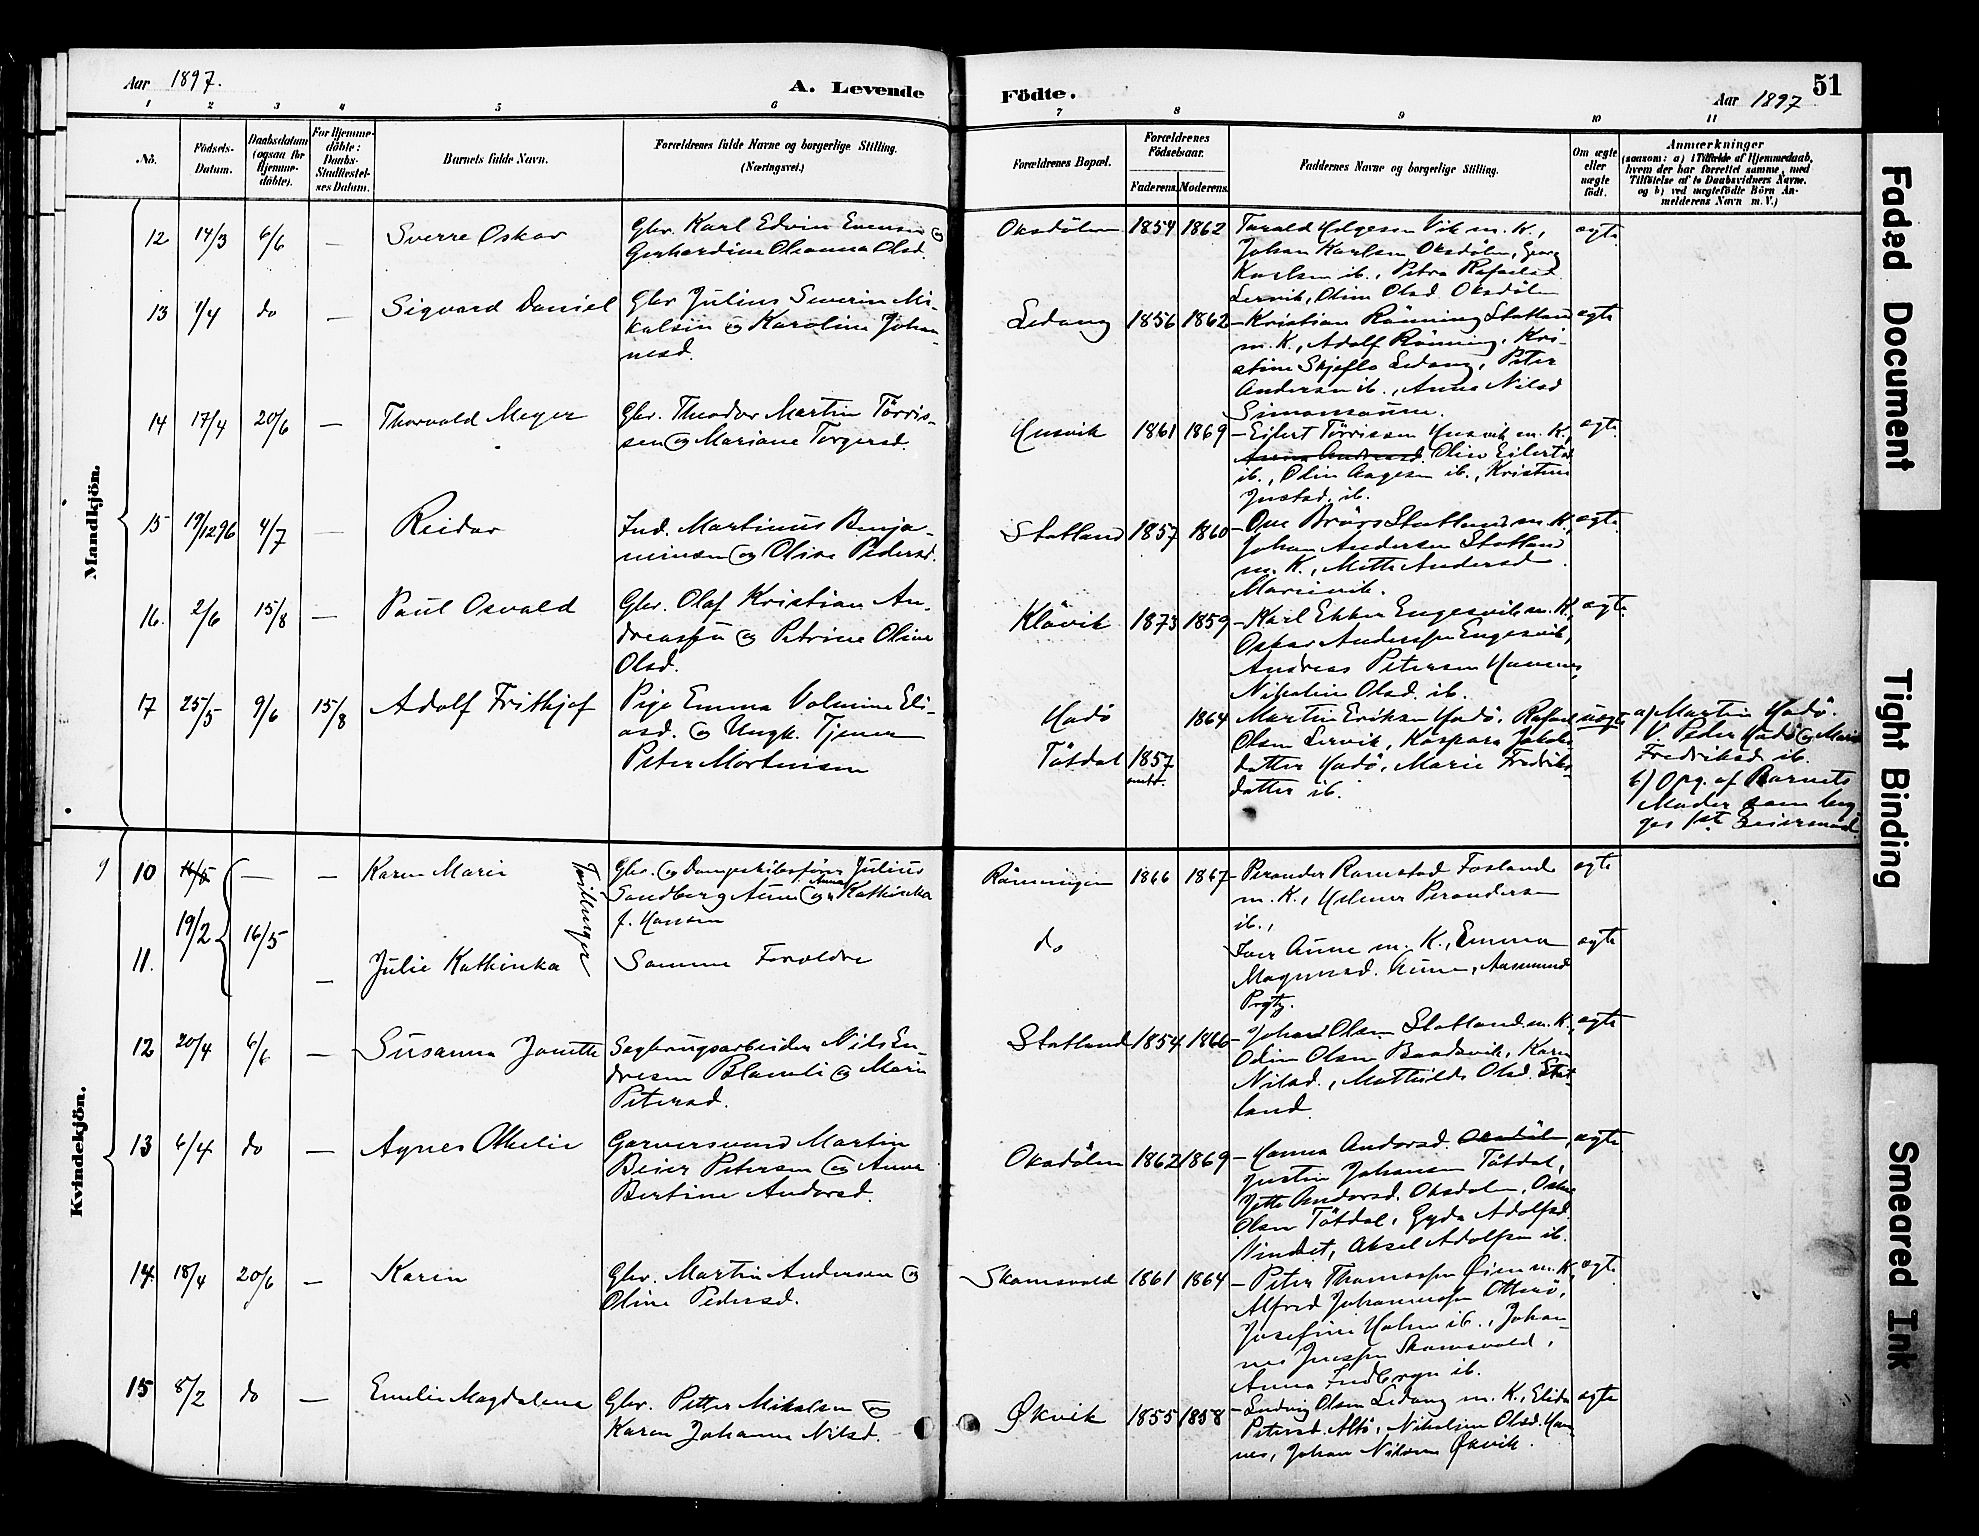 Aar 1897.
A. Levende
Födte.
51
Aar 1897
1 2 3 4 5 6 7 8 9 10 11
No.
Födsels-
Datum.
Daabsdatum
(ogsaa for
Hjemme-
döbte).
For Hjemme-
döbte:
Daabs-
Stadfæstel-
ses Datum.
Barnets fulde Navn.
Forældrenes fulde Navne og borgerlige Stilling.
(Næringsvei.)
Forældrenes Bopæl.
Forældrenes
Födselsaar.
Faderens. Moderens.
Faddernes Navne og borgerlige Stilling.
Om ægte
eller
uægte
födt.
Anmærkninger
(saasom: a) i Tilfælde af Hjemmedaab,
hvem der har forrettet samme, med
Tilföielse af to Daabsvidners Navne,
og b) ved uægtefödte Börn An-
melderens Navn m. V.)
Mandkjön.
12 14/3 6/6 — Sverre Oskar
Gbr. Karl Edvin Evensen og
Gerhardine Olsanna Olsd.
Oksdölen 1854 1862
Torald Helgesen Vik m. K.,
Johan Karlsen Oksdölen, Georg
Karlsen ib., Petra Rafaelsd
Lervik, Oline Olsd Oksdölen
ægte
13 1/4 do — Sigvard Daniel
Gbr Julius Severin Mi-
kalsen og Karoline Johan-
nesd.
Ledang 1856 1862
— Kristian Rönning Statland
m. K., Adolf Rönning, Kri-
stine Skjeflo Ledang, Peter
Andersen ib., Anna Nilsd
Simonsaune.
ægte
14 17/4 20/6 — Thorvald Meyer
Gbr. Theodor Martin Törris-
sen og Mariane Torgersd.
Husvik 1861 1869
— Eilert Törrissen Husvik m. K,
Anna Andreasd. Oline Eilertsd
ib., Olin Aagesen ib., Kristine
Justsd. ib.
ægte.
15 19/12 96 4/7 — Reidar
Ind. Martinus Benja-
minsen og Olina Pedersd.
Statland 1857 1860
— Ove Brörs Statland m. K,
Johan Andersen Statland
m. K., Mette Andersd
Marienvik.
ægte
16. 2/6 15/8 — Paul Osvald
Gbr. Olaf Kristian An-
dreassen og Petrine Oline
Olsd.
Klövik 1873 1859
— Karl Ekker Engesvik m. K,
Oskar Anderssen Engesvik,
Andreas Petersen Hamnes,
Nikoline Olsd. ib.
ægte
17 25/5 9/6 15/8 Adolf Frithjof
Pige Emma Volmine Eli-
asd. og Ungk. Tjener
Peter Mortensen
Hadö
Tötdal
1857
omtr.
1864
Martin Eriksen Hadö, Rafael
Olsen Lervik, Kaspara Jakobs-
datter Hadö, Marie Fredriks-
datter ib.
uægte
a) Martin Hadö.
V. Peder Hadö og Marie
Fredriksd ib.
b) Opg. af Barnets
Moder som læg-
ges 1ste Leiermaal
Kvindekjön.
10 14/5 — — Karen Marie
Tvillinger
Gbr. og Dampskibsförer Julius
Sandberg Aune og Anna Kathinka
f. Hansen
Rönningen 1866 1867
— Perander Ramstad Fosland
m. K., Helmer Perandersen
ib.,
ægte
19/2 16/5
11. — Julie Kathinka
Samme Foreldre
do
Iver Aune m. K., Emma
Magnusd. Aune, Aasmund
Prytz.
ægte
12 20/4 6/6 — Susanna Janette
Sagbrugsarbeider Nils En-
dresen Blaameli og Marie
Petersd.
Statland 1854 1866
— Johan Olsen Statland m. K,
Odin Olsen Baadsvik, Karen
Nilsd., Mathilde Olsd. Stat-
land.
ægte
13 6/4 do — Agnes Othelie
Garversvend Martin
Beier Petersen og Anne
Bertine Andorsd.
Oksdölen 1862 1869
— Hanna Andorsd. Oksdölen,
Justin Johansen Tötdal,
Jette Andorsd. Oksdölen, Oskar
Olsen Tötdal, Gyda Adolfsd.
Vindset, Aksel Adolfsen ib.
ægte
14. 18/4 20/6 — Karen
Gbr. Martin Andersen og
Oline Pedersd.
Skomsvold 1861 1864
— Peter Thomassen Öien m. K,
Alfred Johannessen Otterö,
Josefine Holm ib., Johan-
nes Jenssen Skomsvold,
Anna Fredbryn ib.
ægte
15 8/2 do — Emelie Magdalena
Gbr. Petter Mikalsen og
Karen Johanna Nilsd.
Økvik 1855 1858
— Ludvig Olsen Ledang m. K., Elida
Petersd. Altö, Nikoline Olsd. Ham-
nes, Johan Nilssen Økvik.
ægte
Faded Document
Tight Binding
Smeared Ink